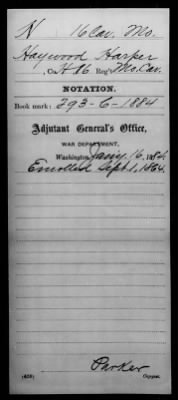 N 16 Cav. Mo.
Haywood Harper
, Co. H 16 Reg't Mo. Cav.
NOTATION.
Book mark: 293-6-1884
Adjutant General's Office,
WAR DEPARTMENT,
Washington, Jany. 16, 1884.
Enrolled Sept. 1, 1864.
Parker
Copyist.